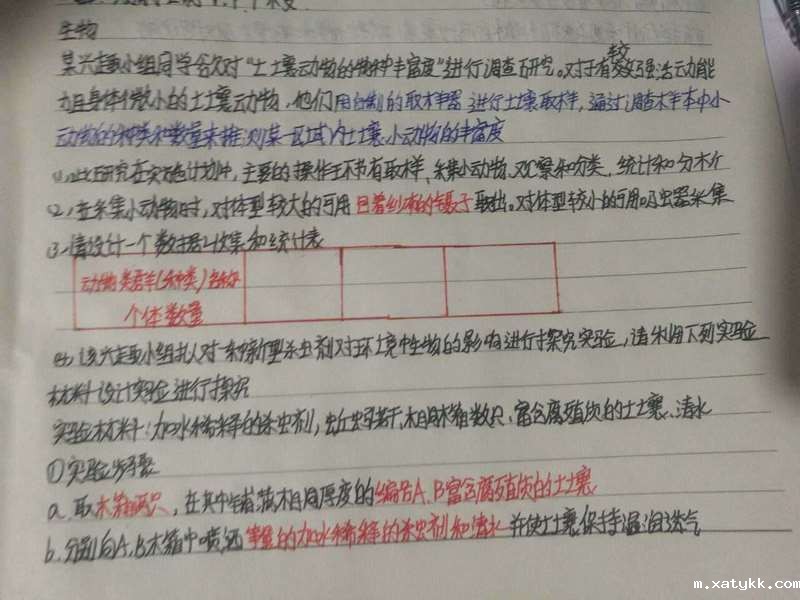 生物
某兴趣小组同学欲对“土壤动物的物种丰富度”进行调查研究。对于有较强活动能
力且身体微小的土壤动物,他们用自制的取样器进行土壤取样,通过调查样本中小
动物的种类和数量来推测某一区域内土壤小动物的丰富度
(1)此研究在实施计划中,主要的操作环节有取样、采集小动物、观察和分类、统计和分析
(2)在采集小动物时,对体型较大的可用包着纱布的镊子取出。对体型较小的可用吸虫器采集
(3)请设计一个数据收集和统计表
动物类群(种类)名称
个体数量
(4)该兴趣小组拟对一种新型杀虫剂对环境中生物的影响进行探究实验,请利用下列实验
材料设计实验进行探究
实验材料:加水稀释的杀虫剂,蚯蚓若干,相同木箱数只,富含腐殖质的土壤、清水
①实验步骤
a.取木箱两只,在其中铺藏相同厚度的编号A.B富含腐殖质的土壤
b.分别向A.B木箱中喷洒等量的加水稀释的杀虫剂和清水并使土壤保持湿润透气
m.xatykk.com